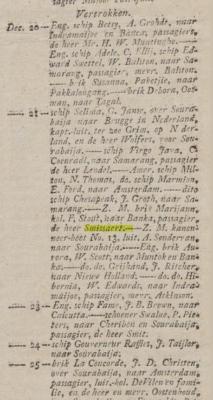 Vertrokken.
Dec. 20 — Eng. schip Betsy, A. Grohdt, naar
Indramaijoe en Banca, passagiers,
de heer Mr. H. W. Muntinghe. —
Eng. schip Adele, C. Ellis, schip Ed-
ward Szettel, W. Balston, naar Sa-
marang, passagier, mevr. Balston.
— brik Susanna, Pabetjie, naar
Pakkalongang. — brik Debora, Oos-
man, naar Tagal.
— 21 — schip Selima, G. Jauw, over Soura-
baija naar Brugge in Nederland,
kapt.-luit. ter zee Grim, op Neder-
land, en de heer Wolfers, voor Sou-
rabaija. — schip Virgo Java, C.
Coenraadi, naar Samarang, passagier
de heer Lendel. — Amer. schip Mil-
ton, N. Thomas, de schip Harmonia,
E. Ford, naar Amsterdam. — dito
schip Chesapeak, J. Groth, naar Sa-
marang. — Z. M. brik Marijann,
kol. F. Stout, naar Banka, passagier,
de heer Smissaert. — Z. M. kanon-
neer-boot No. 13, luit. A. Sondervan,
naar Sourabaija. — Eng. brik Au-
rora, W. Scott, naar Muntok en Ban-
ka. — do. do. Greijhand, J. Ritcher,
naar Nieuw Holland. — do. do. Hi-
bernia, W. Edwards, naar Indra-
maijoe, passagier, mevr. Atchison.
— 23 — Eng. schip Fame, J. B. Brown, naar
Calcutta. — schoener Swalue, P. Pie-
ters, naar Cheribon en Sourabaija,
passagier, de heer Smit.
— 24 — schip Gouverneur Raffles, J. Taijlor,
naar Sourabaija.
— 25 — brik La Concorde, J. D. Christen,
over Sourabaija, naar Amsterdam,
passagier, luit.-kol. De Vilen en fami-
lie, en de heer en mevr. Oostenhoud.